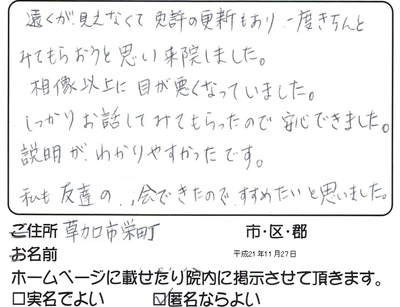 遠くが見えなくて免許の更新もあり一度きちんと
みてもらおうと思い来院しました。
想像以上に目が悪くなっていました。
しっかりお話してみてもらったので安心できました。
説明がわかりやすかったです。
私も友達の 会できたのですすめたいと思いました。
ご住所 草加市栄町 市・区・郡
お名前 平成21年11月27日
ホームページに載せたり院内に掲示させて頂きます。
□実名でよい ☑匿名ならよい